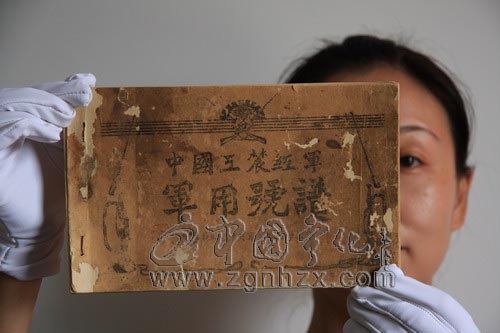 中國工農紅軍
軍用號譜
中国宁化
www.zgnhzx.com